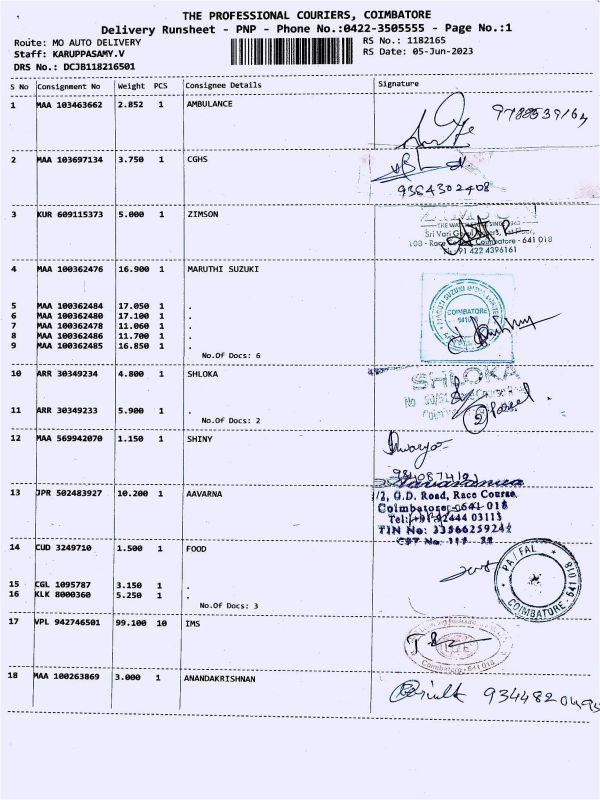 THE PROFESSIONAL COURIERS, COIMBATORE
Delivery Runsheet - PNP - Phone No.:0422-3505555 - Page No.:1
Route: MO AUTO DELIVERY
RS No.: 1182165
Staff: KARUPPASAMY.V
RS Date: 05-Jun-2023
DRS No.: DCJB118216501
S No Consignment No Weight PCS Consignee Details Signature
1 MAA 103463662 2.852 1 AMBULANCE
2 MAA 103697134 3.750 1 CGHS
9364302408
3 KUR 609115373 5.000 1 ZIMSON
108 - Race Coimbatore - 641 018
91 422 4396161
4 MAA 100362476 16.900 1 MARUTHI SUZUKI
5 MAA 100362484 17.050 1 .
6 MAA 100362480 17.100 1 .
7 MAA 100362478 11.060 1 .
8 MAA 100362486 11.700 1 .
9 MAA 100362485 16.850 1 .
No.Of Docs: 6
COIMBATORE
10 ARR 30349234 4.800 1 SHLOKA
SHLOKA
11 ARR 30349233 5.900 1 .
No.Of Docs: 2
12 MAA 569942070 1.150 1 SHINY
13 JPR 502483927 10.200 1 AAVARNA
/2, G.D. Road, Race Course,
Coimbatore-641 018
TIN No: 33566259242
14 CUD 3249710 1.500 1 FOOD
COIMBATORE 641 018
15 CGL 1095787 3.150 1 .
16 KLK 8000360 5.250 1 .
No.Of Docs: 3
17 VPL 942746501 99.100 10 IMS
Coimbatore - 641 018
18 MAA 100263869 3.000 1 ANANDAKRISHNAN